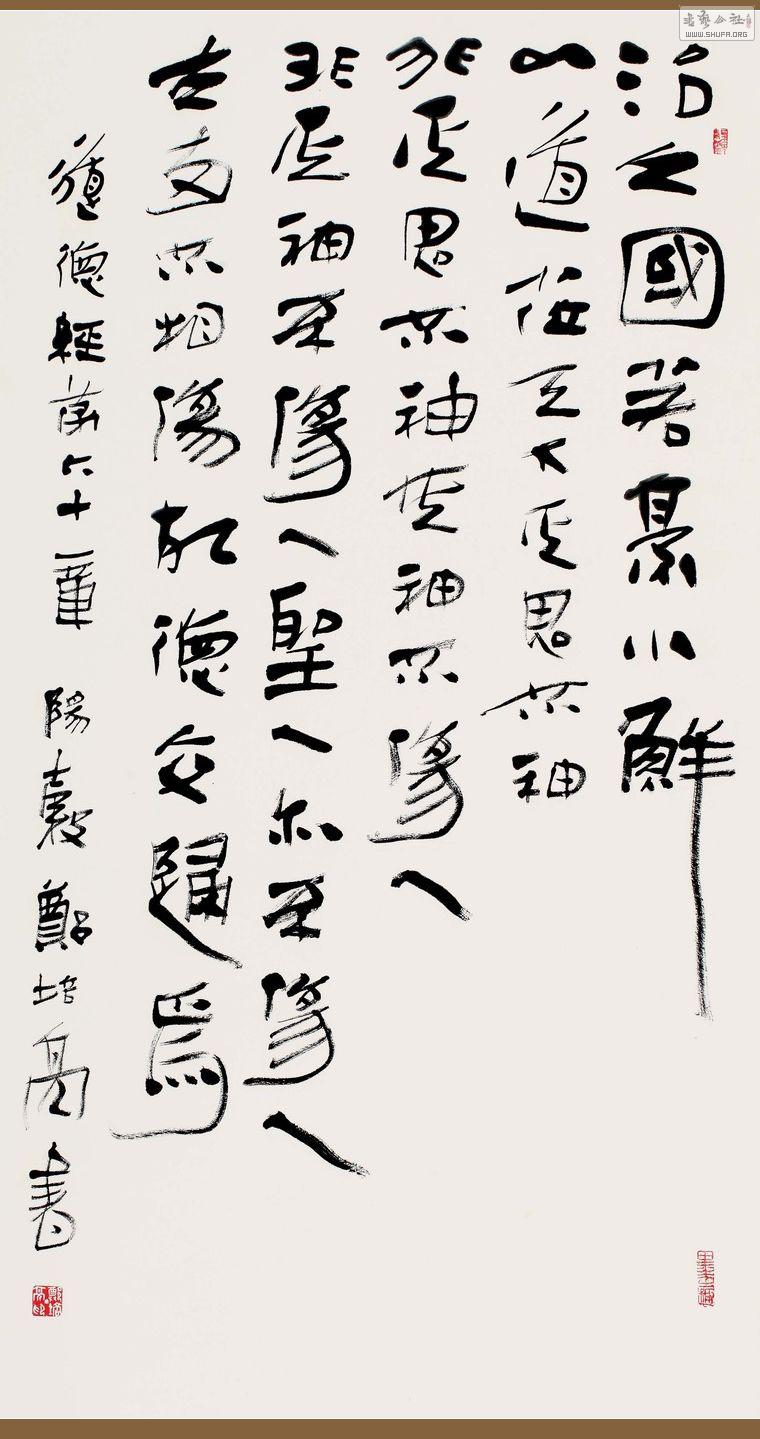 治大國若烹小鮮
以道莅天下其鬼不神
非其鬼不神其神不傷人
非其神不傷人聖人亦不傷人
夫兩不相傷故德交歸焉
道德經第六十一章 陽穀鄭培亮書
鄭培亮印
書藝公社
WWW.SHUFA.ORG